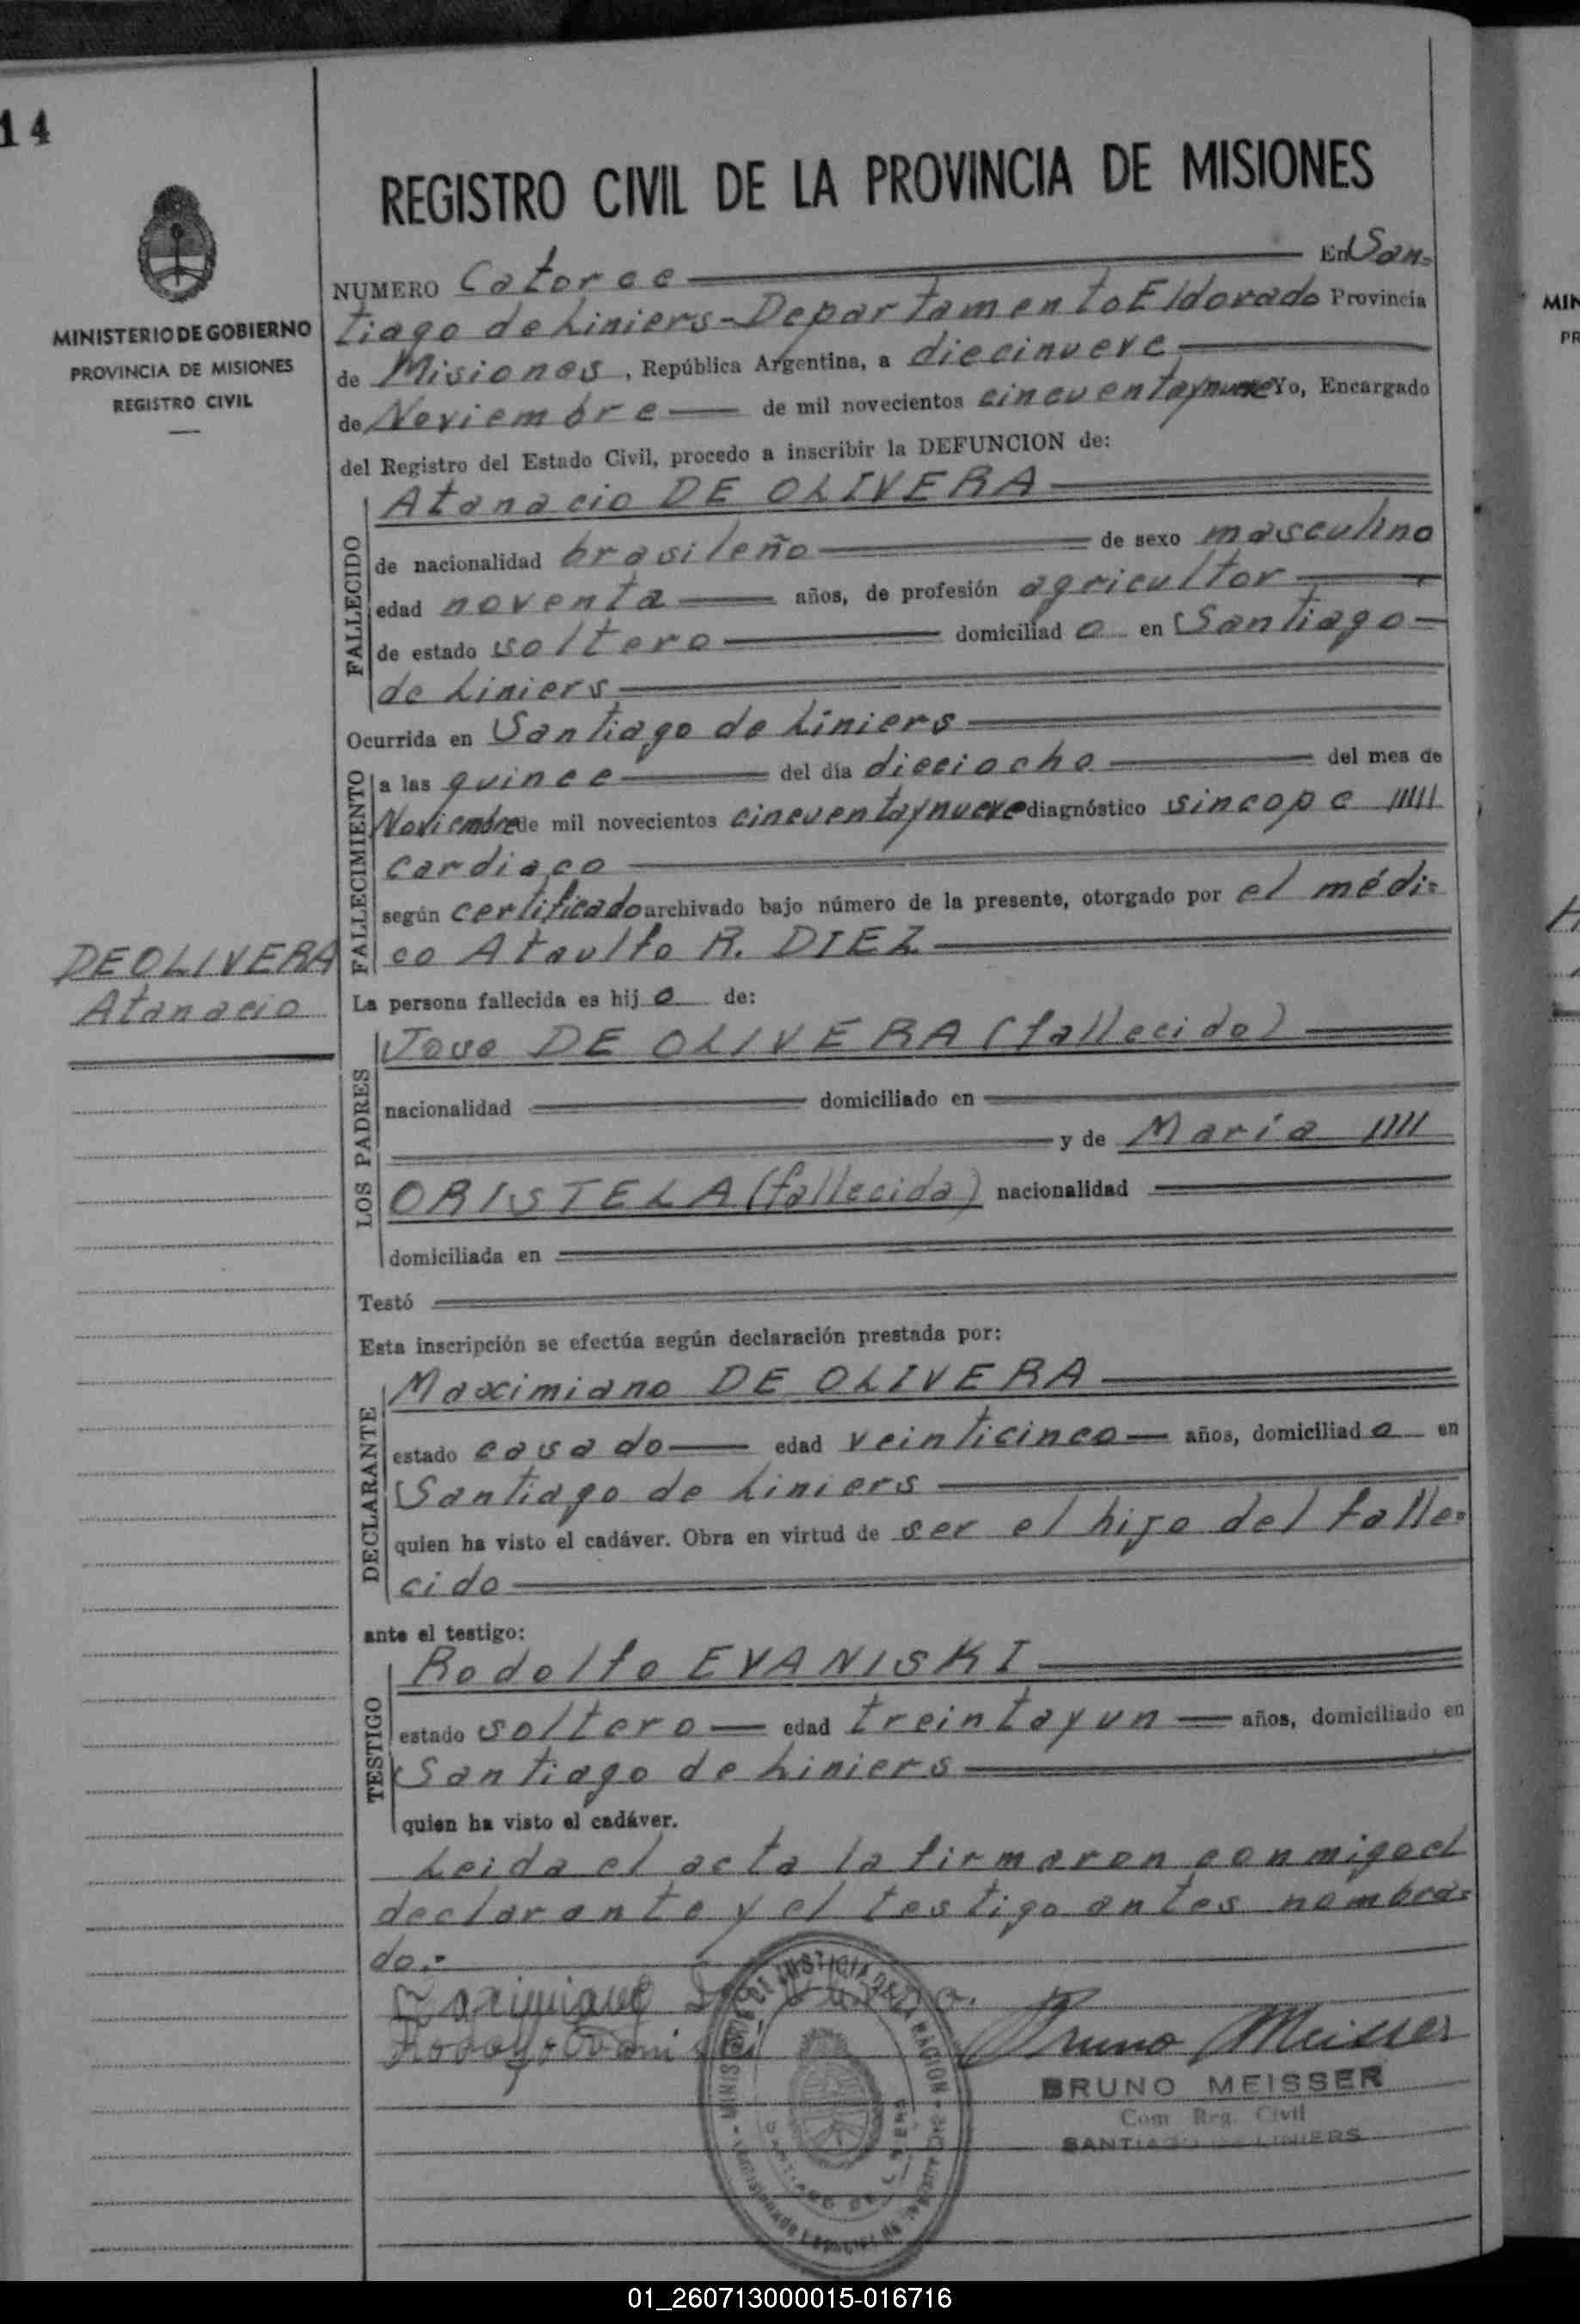 14
MINISTERIO DE GOBIERNO
PROVINCIA DE MISIONES
REGISTRO CIVIL
DE OLIVERA
Atanacio
REGISTRO CIVIL DE LA PROVINCIA DE MISIONES
NUMERO Catorce En San-
tiago de Liniers-Departamento Eldorado Provincia
de Misiones, República Argentina, a diecinueve
de Noviembre de mil novecientos cincuentaynueve Yo, Encargado
del Registro del Estado Civil, procedo a inscribir la DEFUNCION de:
FALLECIDO
Atanacio DE OLIVERA
de nacionalidad brasileño de sexo masculino
edad noventa años, de profesión agricultor
de estado soltero domiciliad o en Santiago
de Liniers
Ocurrida en Santiago de Liniers
FALLECIMIENTO
a las quince del día dieciocho del mes de
Noviembre de mil novecientos cincuentaynueve diagnóstico sincope
cardiaco
según certificado archivado bajo número de la presente, otorgado por el médi-
co Ataulfo R. DIEZ
La persona fallecida es hij o de:
LOS PADRES
Jose DE OLIVERA (fallecido)
nacionalidad domiciliado en
y de María
ORISTELA (fallecida) nacionalidad
domiciliada en
Testó
Esta inscripción se efectúa según declaración prestada por:
DECLARANTE
Maximiano DE OLIVERA
estado casado edad veinticinco años, domiciliad o en
Santiago de Liniers
quien ha visto el cadáver. Obra en virtud de ser el hijo del falle-
cido
ante el testigo:
TESTIGO
Rodolfo EVANISKI
estado soltero edad treintayun años, domiciliado en
Santiago de Liniers
quien ha visto el cadáver.
Leida el acta la firmaron conmigo el
declarante y el testigo antes nombra-
do.-
Bruno Meisser
BRUNO MEISSER
Com Reg. Civil
SANTIAGO DE LINIERS
DE JUSTICIA DE LA NACION
MIN
PR
01_260713000015-016716